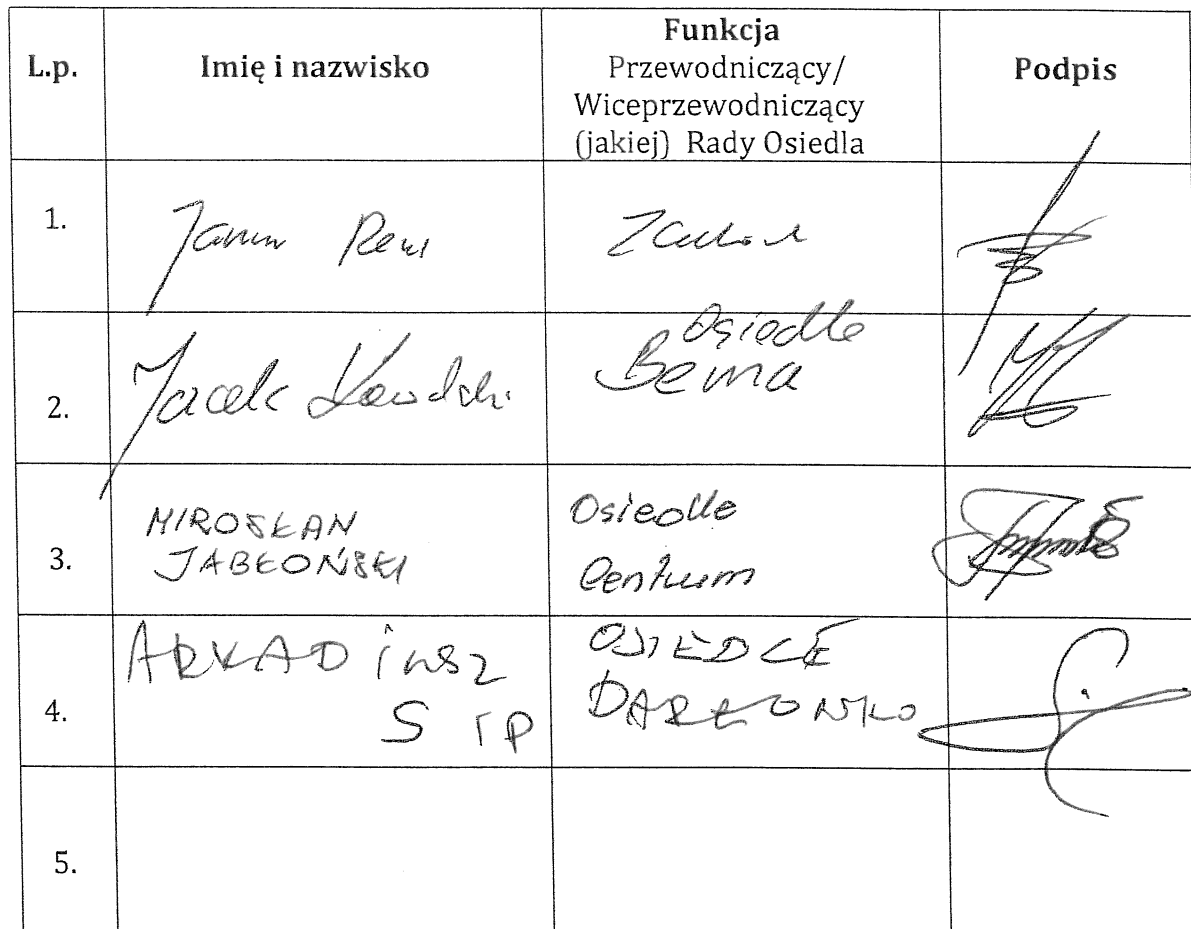 L.p.
Imię i nazwisko
Funkcja
Przewodniczący/
Wiceprzewodniczący
(jakiej) Rady Osiedla
Podpis
1.
2.
Jacek
Osiedle
Bema
3.
MIROSŁAW
JABŁOŃSKI
Osiedle
Centrum
4.
ARKADiusz
SIP
OSIEDLE
DARŁÓWKO
5.